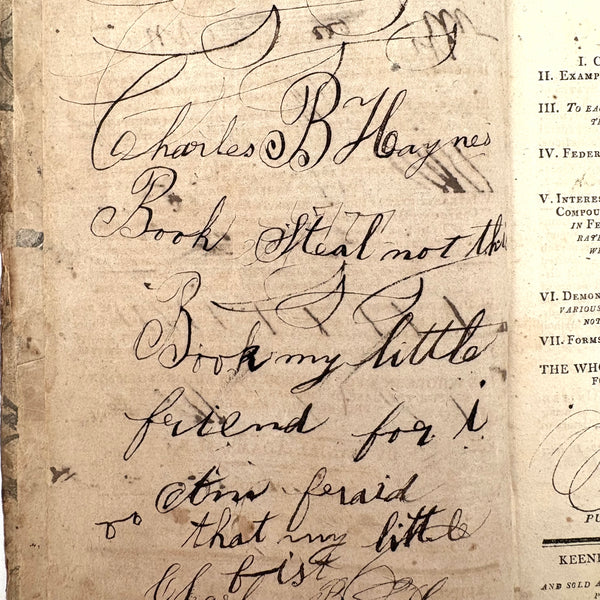 Charles B Haynes
Book Steal not this
Book my little
friend for i
Am feraid
that my little
fist
Charl B H
I. C
II. EXAMP
III. TO EA
TH
IV. FEDER
V. INTERES
COMPOU
IN FE
RATE
WI
VI. DEMON
VARIOUS
NOT
VII. FORMS
THE WHO
FO
PU
KEENE
AND SOLD A